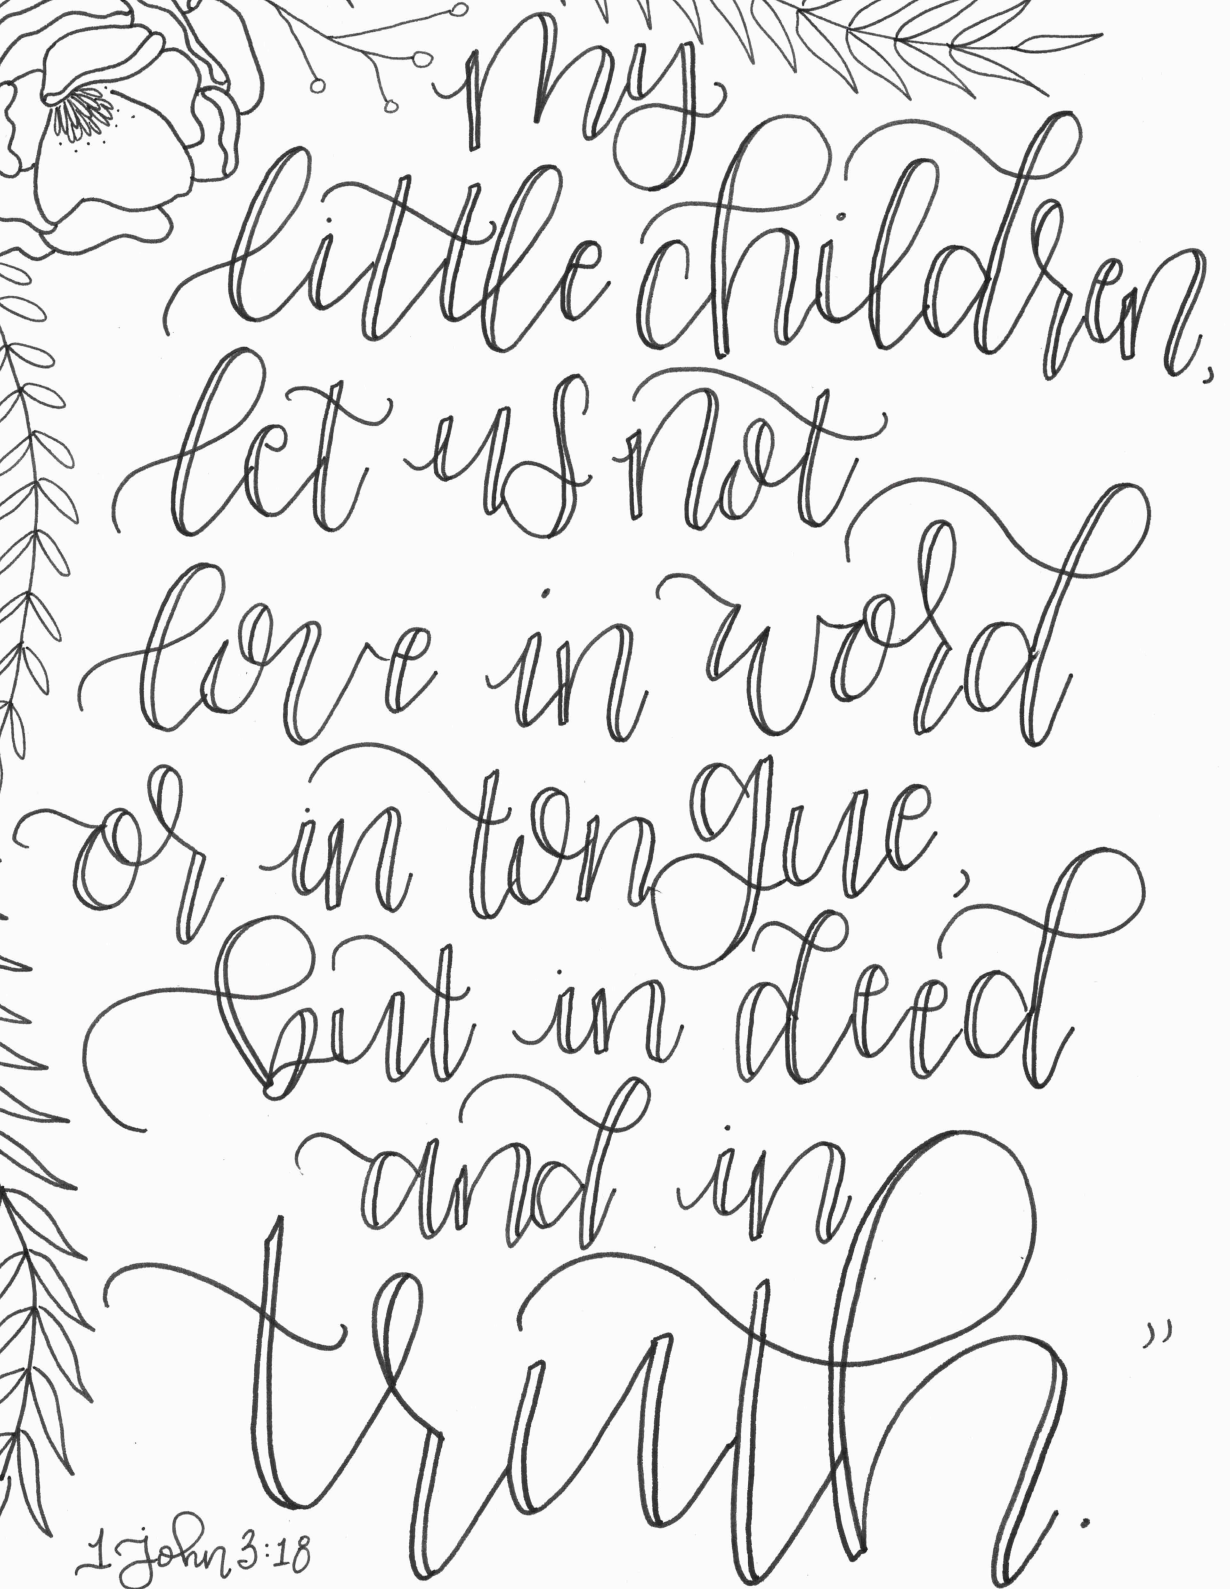 my
little children,
let us not
love in word
or in tongue,
but in deed
and in
truth."
1 John 3:18